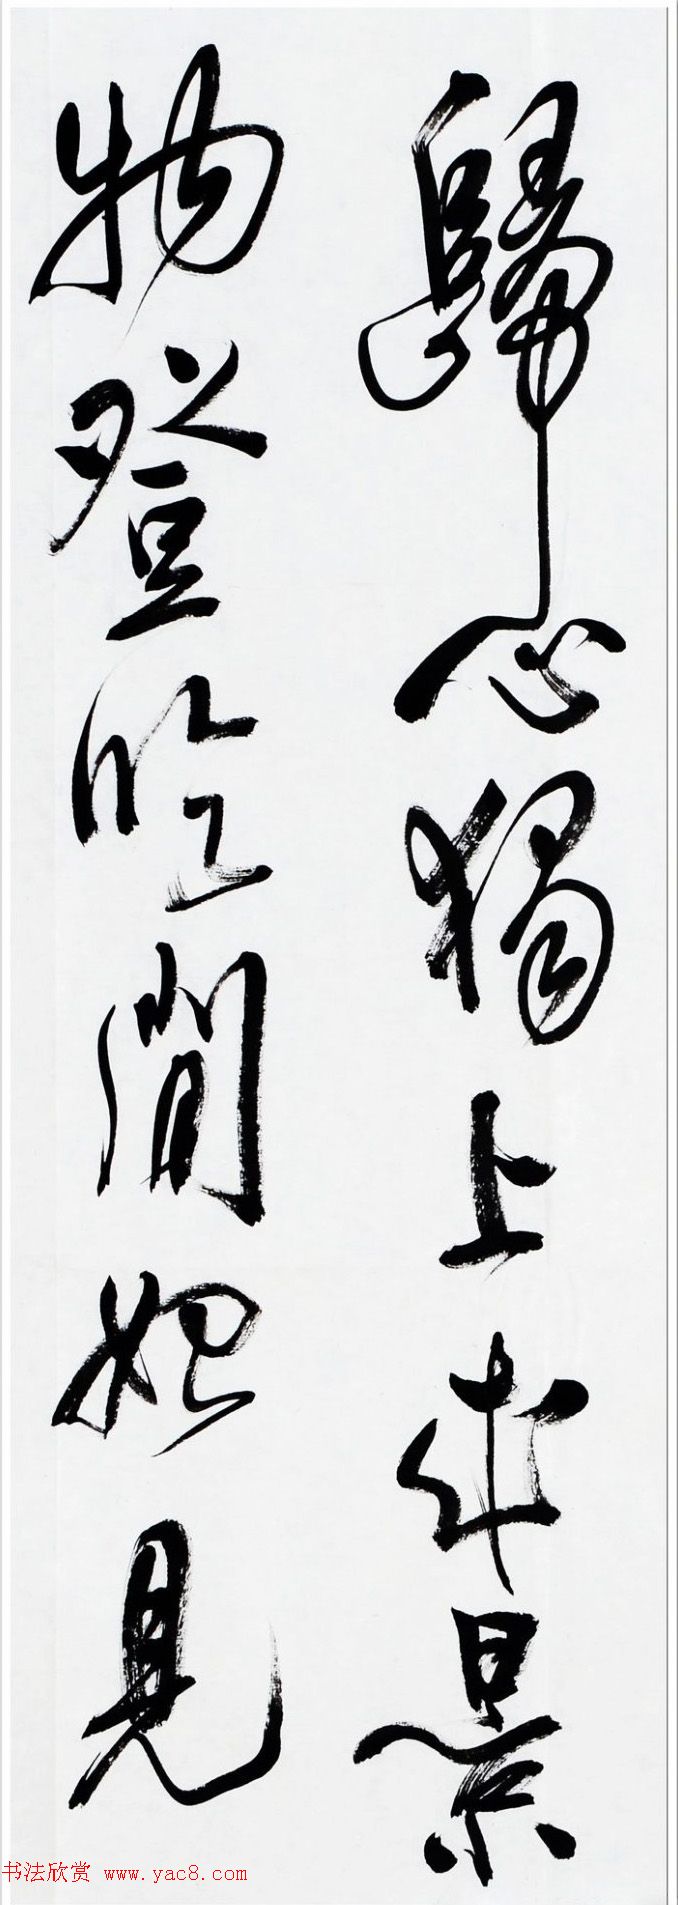 歸心獨上求景
物登臨間始見
书法欣赏 www.yac8.com